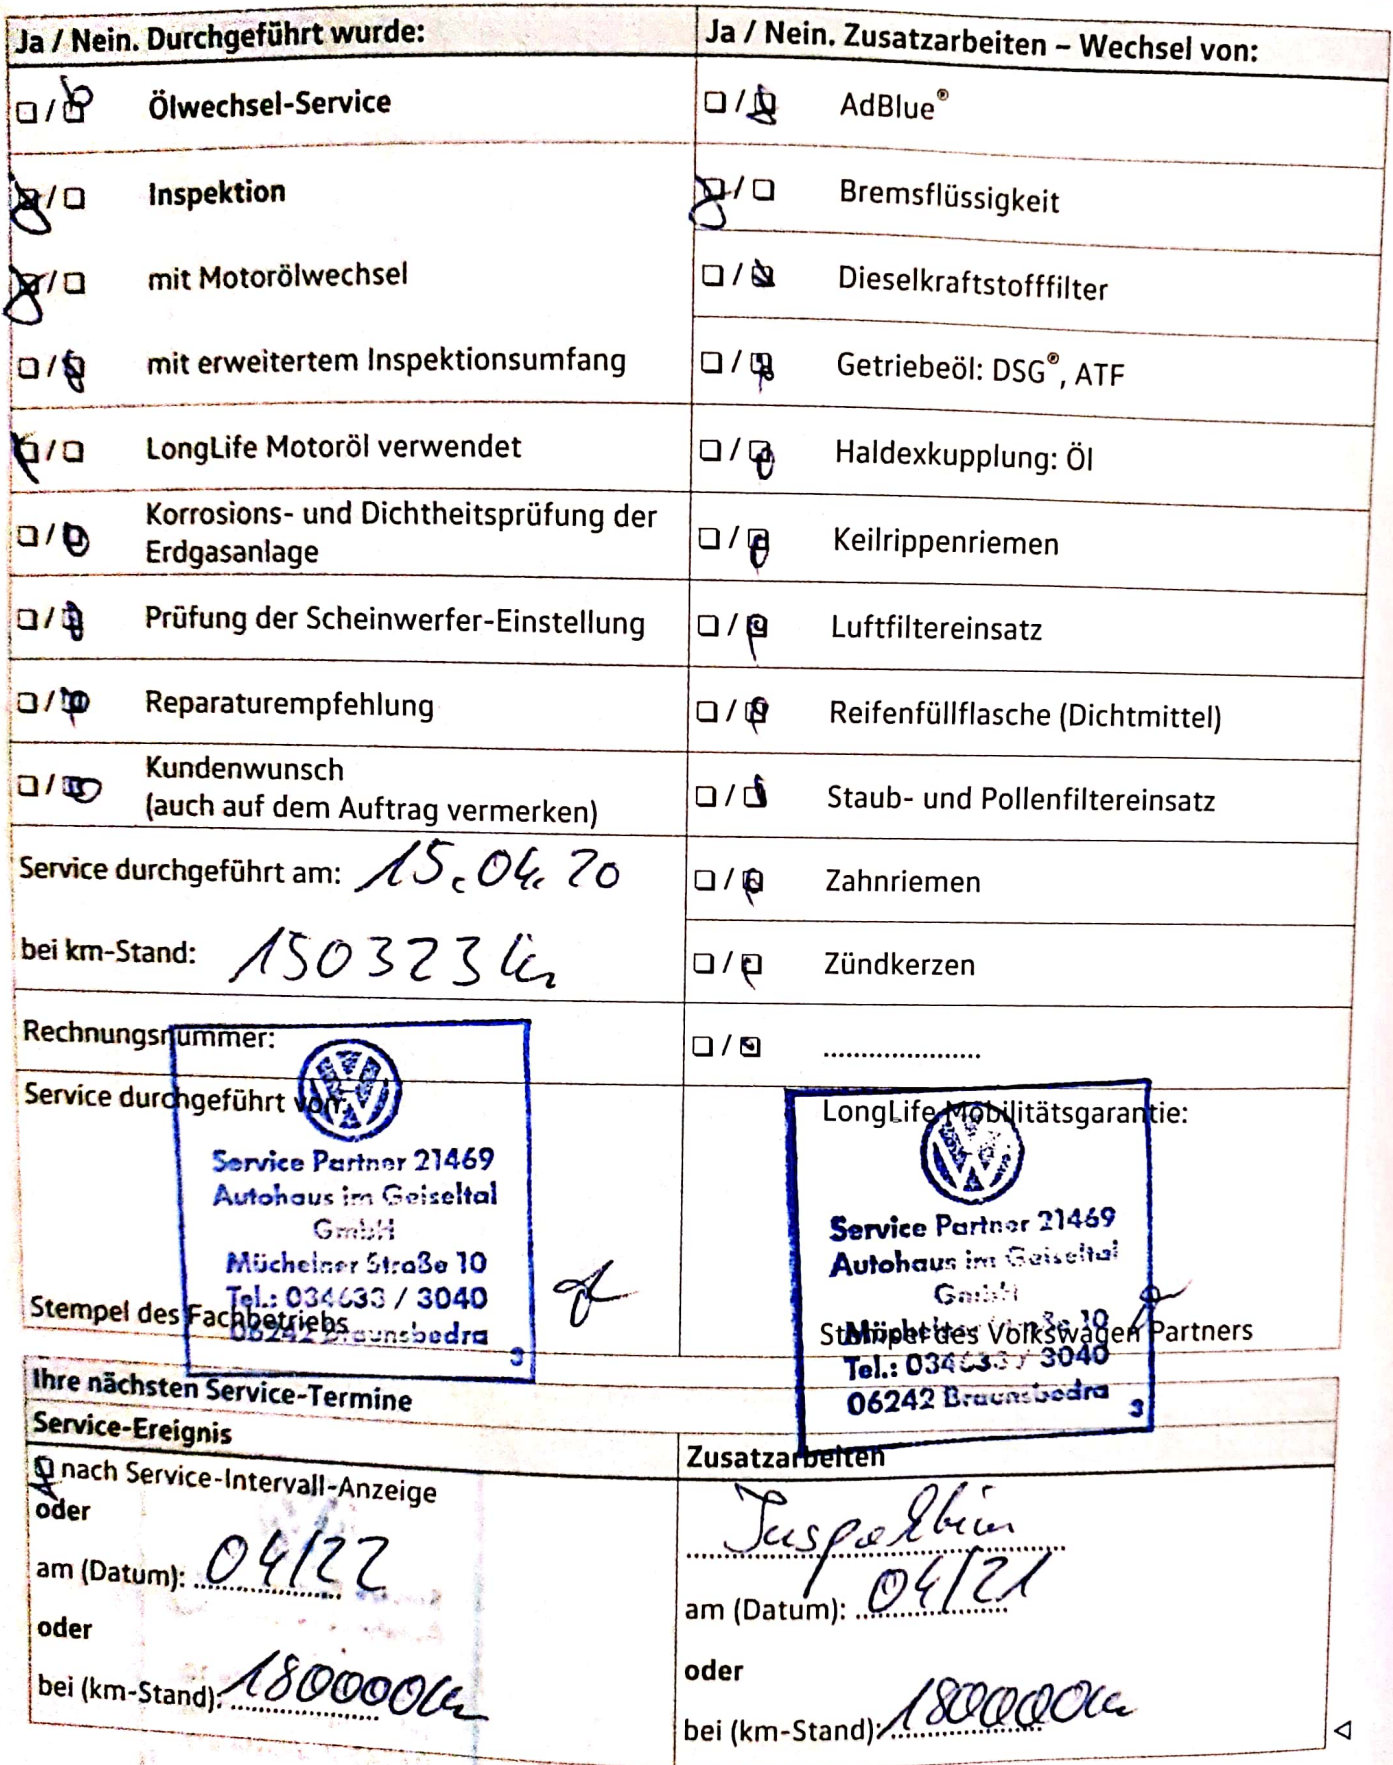 Ja / Nein. Durchgeführt wurde:
Ölwechsel-Service
Inspektion
mit Motorölwechsel
mit erweitertem Inspektionsumfang
LongLife Motoröl verwendet
Korrosions- und Dichtheitsprüfung der
Erdgasanlage
Prüfung der Scheinwerfer-Einstellung
Reparaturempfehlung
Kundenwunsch
(auch auf dem Auftrag vermerken)
Service durchgeführt am: 15.04.20
bei km-Stand: 150323 km
Rechnungsnummer:
Service durchgeführt von:
Service Partner 21469
Autohaus im Geiseltal
GmbH
Müchelner Straße 10
Tel.: 034633 / 3040
06242 Braunsbedra
3
Stempel des Fachbetriebs
Ja / Nein. Zusatzarbeiten – Wechsel von:
AdBlue®
Bremsflüssigkeit
Dieselkraftstofffilter
Getriebeöl: DSG®, ATF
Haldexkupplung: Öl
Keilrippenriemen
Luftfiltereinsatz
Reifenfüllflasche (Dichtmittel)
Staub- und Pollenfiltereinsatz
Zahnriemen
Zündkerzen
.....................
LongLife Mobilitätsgarantie:
Service Partner 21469
Autohaus im Geiseltal
GmbH
Müchelner Straße 10
Tel.: 034633 / 3040
06242 Braunsbedra
3
Stempel des Volkswagen Partners
Ihre nächsten Service-Termine
Service-Ereignis
nach Service-Intervall-Anzeige
oder
am (Datum): 04/22
oder
bei (km-Stand): 180000 km
Zusatzarbeiten
Inspektion
am (Datum): 04/21
oder
bei (km-Stand): 180000 km